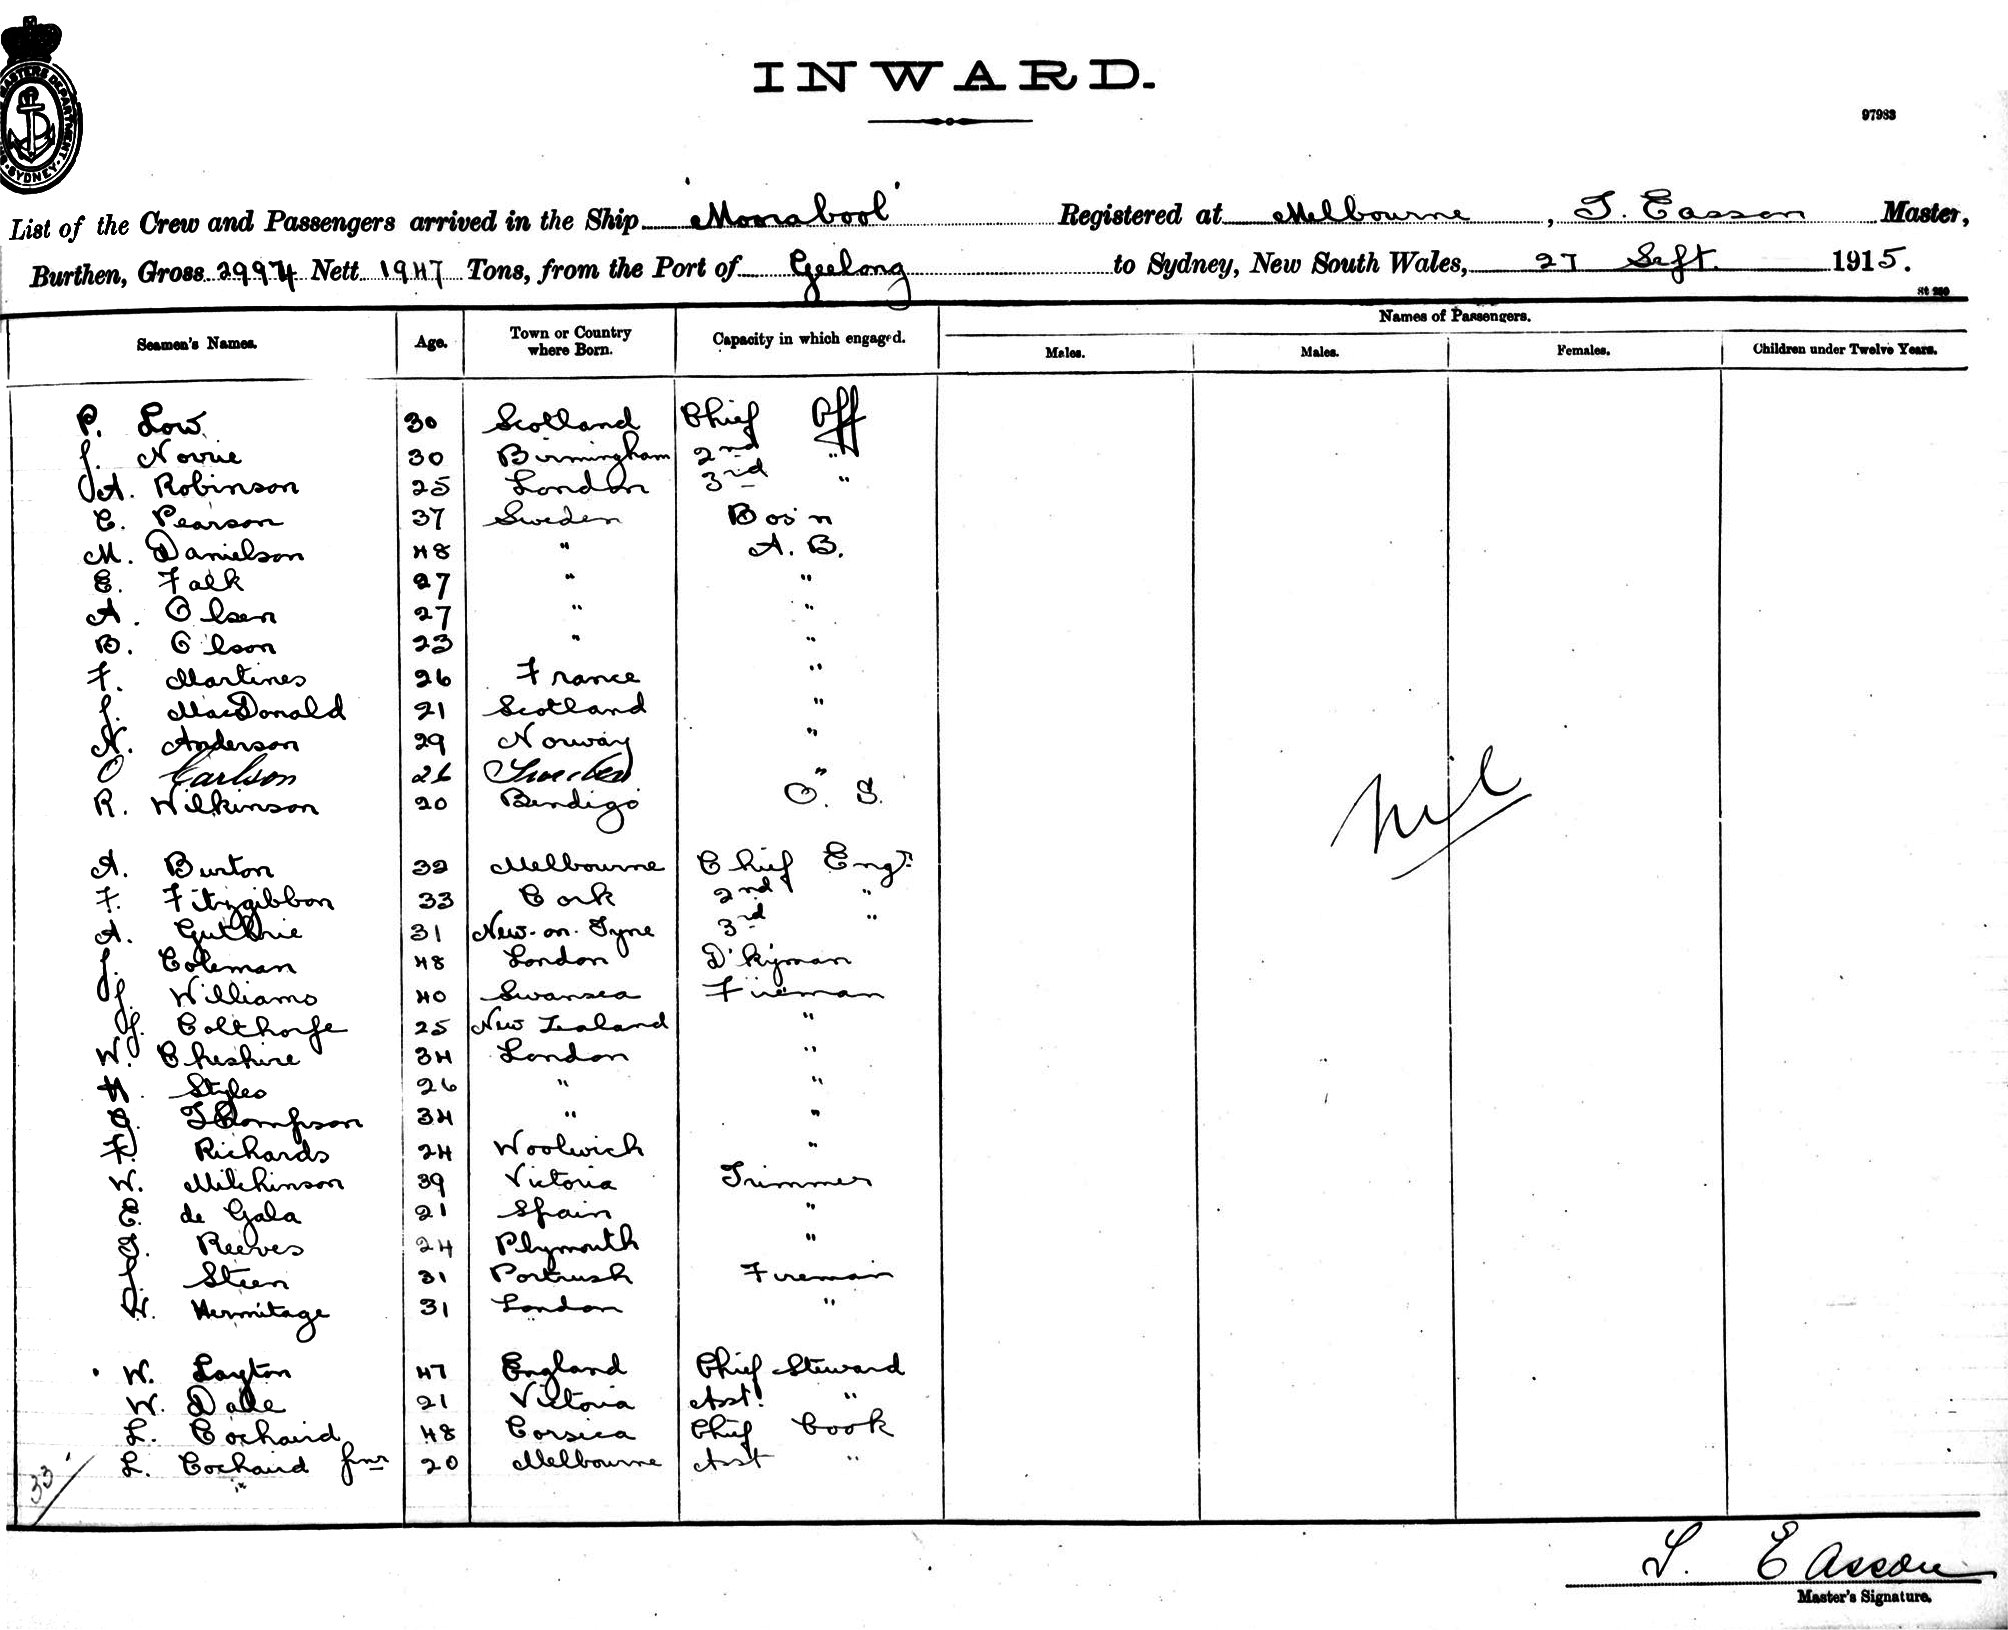 INWARD.
97983
MASTERS DEPARTMENT SYDNEY
List of the Crew and Passengers arrived in the Ship "Moorabool" Registered at Melbourne, T. Easson Master,
Burthen, Gross 2994 Nett 1947 Tons, from the Port of Geelong to Sydney, New South Wales, 27 Sept. 1915.
St 230
Names of Passengers.
Seamen's Names. Age. Town or Country where Born. Capacity in which engaged. Males. Males. Females. Children under Twelve Years.
P. Low 30 Scotland Chief Off
J. Norrie 30 Birmingham 2nd "
A. Robinson 25 London 3rd "
C. Pearson 37 Sweden Bos'n
M. Danielson 48 " A. B.
E. Falk 27 " "
A. Olsen 27 " "
B. Olson 23 " "
F. Martines 26 France "
J. MacDonald 21 Scotland "
N. Anderson 29 Norway "
O Carlson 26 Sweden "
R. Wilkinson 20 Bendigo O. S.
Nil
A. Burton 32 Melbourne Chief Engr.
F. Fitzgibbon 33 Cork 2nd "
A. Guthrie 31 New-on-Tyne 3rd "
J. Coleman 48 London D'kyman
J. Williams 40 Swansea Fireman
J. Colthorpe 25 New Zealand "
W. Cheshire 34 London "
H. Styles 26 " "
G. Thompson 34 " "
F. Richards 24 Woolwich "
W. Mitchinson 39 Victoria Trimmer
E. de Gala 21 Spain "
T. Reeves 24 Plymouth "
J. Steen 31 Portrush Fireman
W. Hermitage 31 London "
W. Layton 47 England Chief Steward
W. Dale 21 Victoria Asst. "
L. Cochaird 48 Corsica Chief Cook
L. Cochaird Jnr 20 Melbourne Asst "
33
T. Easson
Master's Signature.